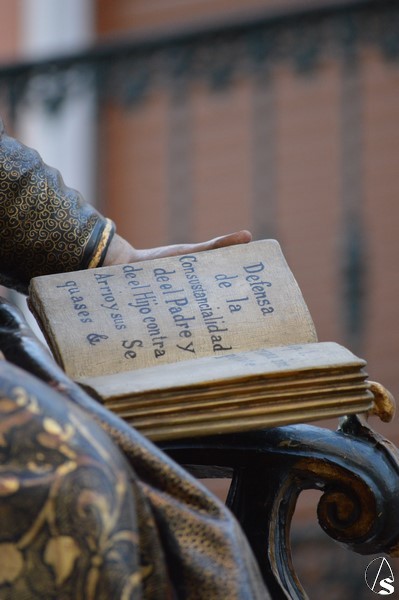 Defensa
de la
Consustancialidad
de el Padre y
de el Hijo contra
Arrio y sus Se
quases &